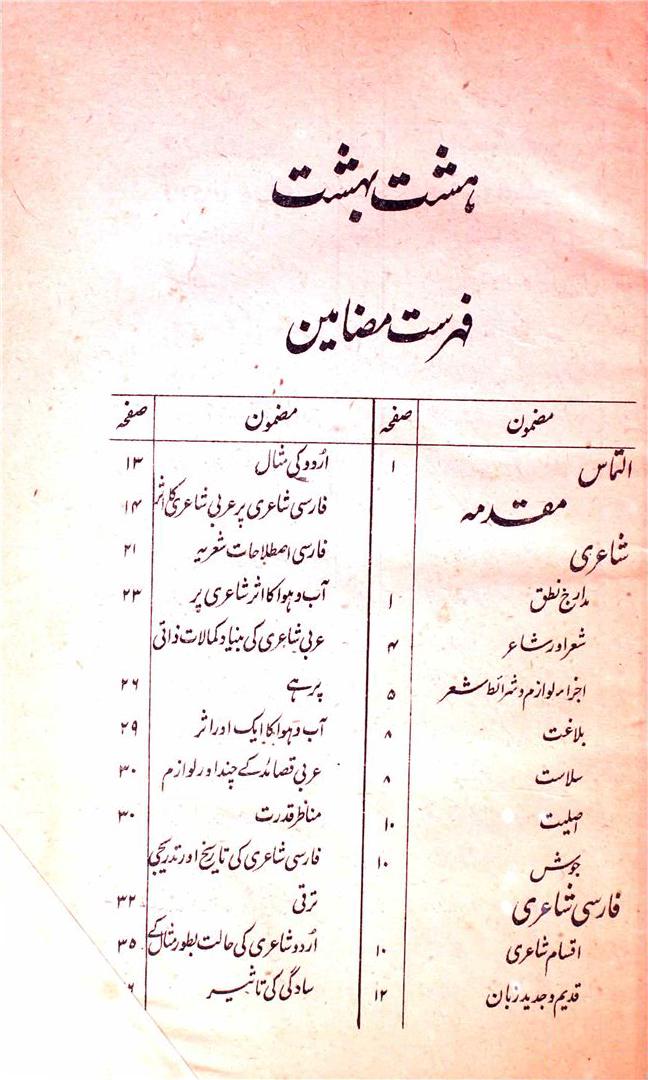 ہشت بہشت
فہرست مضامین
مضمون صفحہ مضمون صفحہ
التماس ۱
مقدمہ
شاعری
مدارج نطق ۱
شعر اور شاعر ۴
اجزاء لوازم و شرائط شعر ۵
بلاغت ۸
سلاست ۸
اصلیت ۱۰
جوش ۱۰
فارسی شاعری
اقسام شاعری ۱۰
قدیم و جدید زبان ۱۲
اردو کی مثال ۱۳
فارسی شاعری پر عربی شاعری کا اثر ۱۴
فارسی اصطلاحات شعریہ ۲۱
آب و ہوا کا اثر شاعری پر ۲۳
عربی شاعری کی بنیاد کمالات ذاتی
پر ہے ۲۶
آب و ہوا کا ایک اور اثر ۲۹
عربی قصائد کے چند اور لوازم ۳۰
مناظر قدرت ۳۰
فارسی شاعری کی تاریخ اور تدریجی
ترقی ۳۲
اردو شاعری کی حالت بطور مثال کے ۳۵
سادگی کی تاثیر